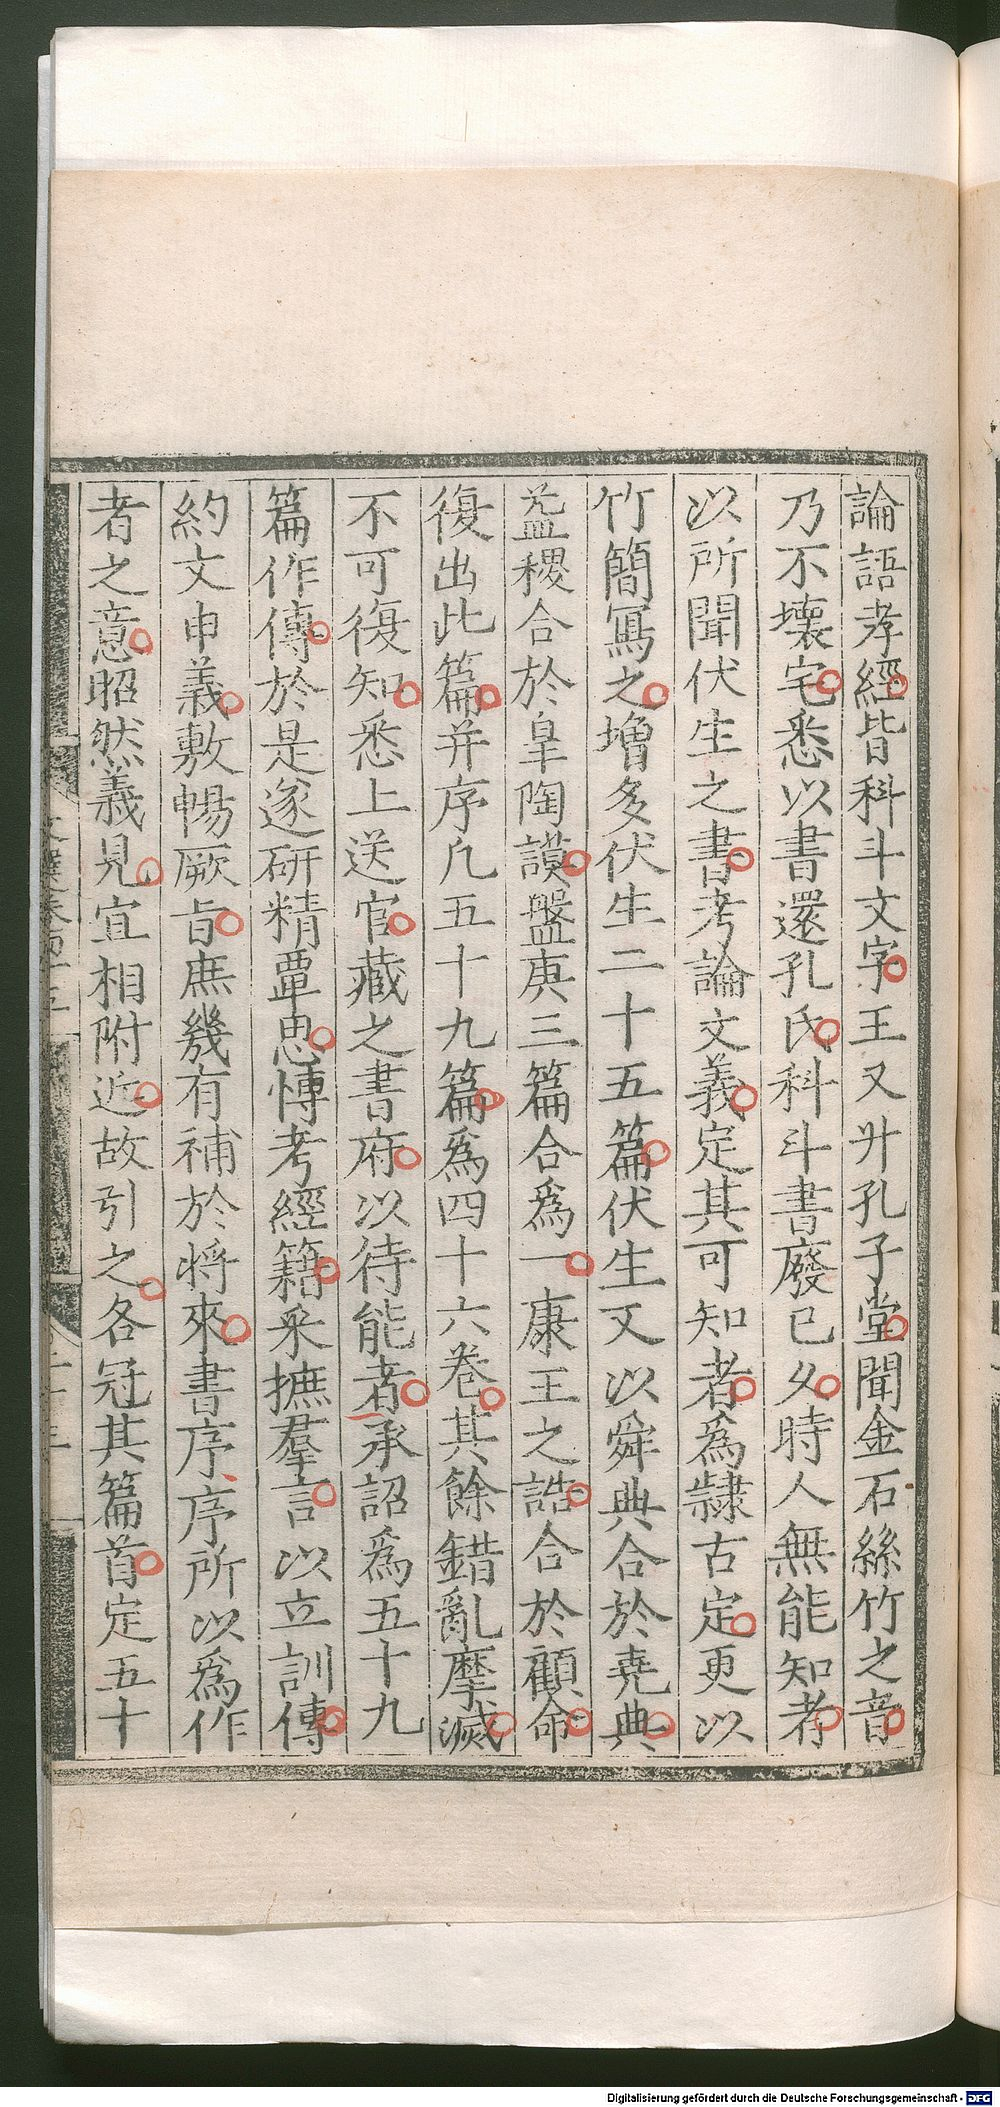 論語孝經皆科斗文字王又升孔子堂聞金石絲竹之音
乃不壞宅悉以書還孔氏科斗書廢已久時人無能知者
以所聞伏生之書考論文義定其可知者為隸古定更以
竹簡寫之增多伏生二十五篇伏生又以舜典合於堯典
益稷合於皐陶謨盤庚三篇合為一康王之誥合於顧命
復出此篇并序凢五十九篇為四十六卷其餘錯亂摩滅
不可復知悉上送官藏之書府以待能者承詔為五十九
篇作傳於是遂研精覃思慱考經籍釆摭羣言以立訓傳
約文申義敷暢厥旨庶幾有補於將來書序序所以為作
者之意昭然義見宜相附近故引之各冠其篇首定五十
Digitalisierung gefördert durch die Deutsche Forschungsgemeinschaft - DFG